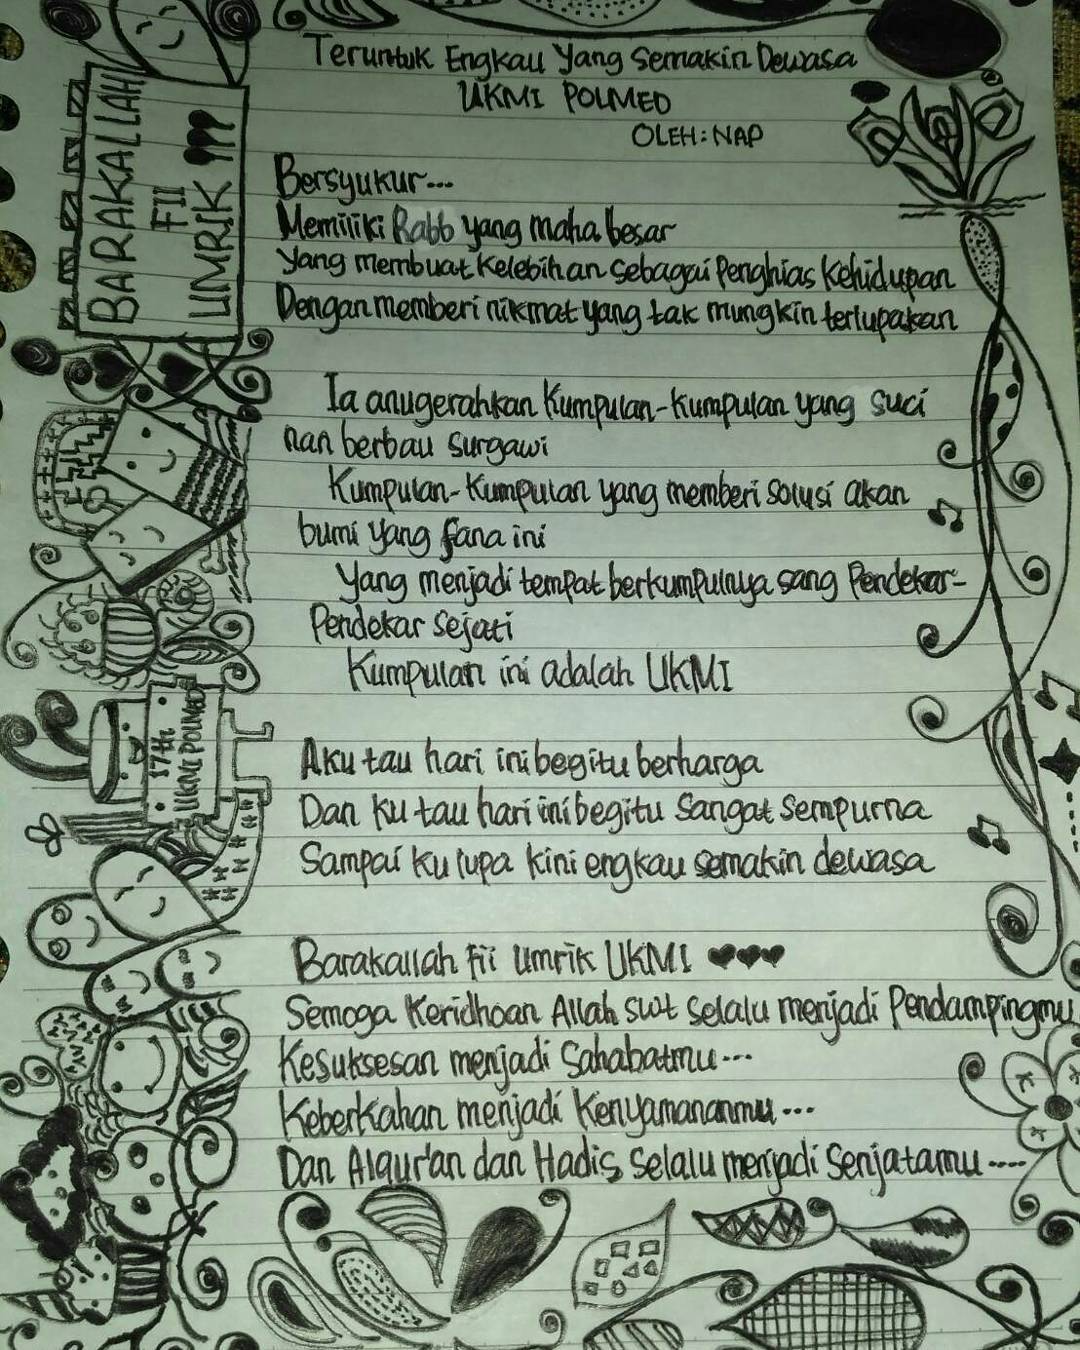 Teruntuk Engkau Yang Semakin Dewasa
UKMI POLMED
OLEH: NAP
BARAKALLAH
FII
UMRIK
Bersyukur...
Memiliki Rabb yang maha besar
Yang membuat Kelebihan sebagai Penghias Kehidupan
Dengan memberi nikmat yang tak mungkin terlupakan
Ia anugerahkan Kumpulan-kumpulan yang suci
nan berbau surgawi
Kumpulan-kumpulan yang memberi solusi akan
bumi yang fana ini
Yang menjadi tempat berkumpulnya sang Pendekar-
Pendekar Sejati
Kumpulan ini adalah UKMI
17th
UKMI POLMED
Aku tau hari ini begitu berharga
Dan ku tau hari ini begitu sangat sempurna
Sampai ku lupa kini engkau semakin dewasa
Barakallah Fii Umrik UKMI ♥♥♥
Semoga Keridhoan Allah swt selalu menjadi Pendampingmu
Kesuksesan menjadi Sahabatmu...
Keberkahan menjadi Kenyamananmu...
Dan Alqur'an dan Hadis selalu menjadi Senjatamu....